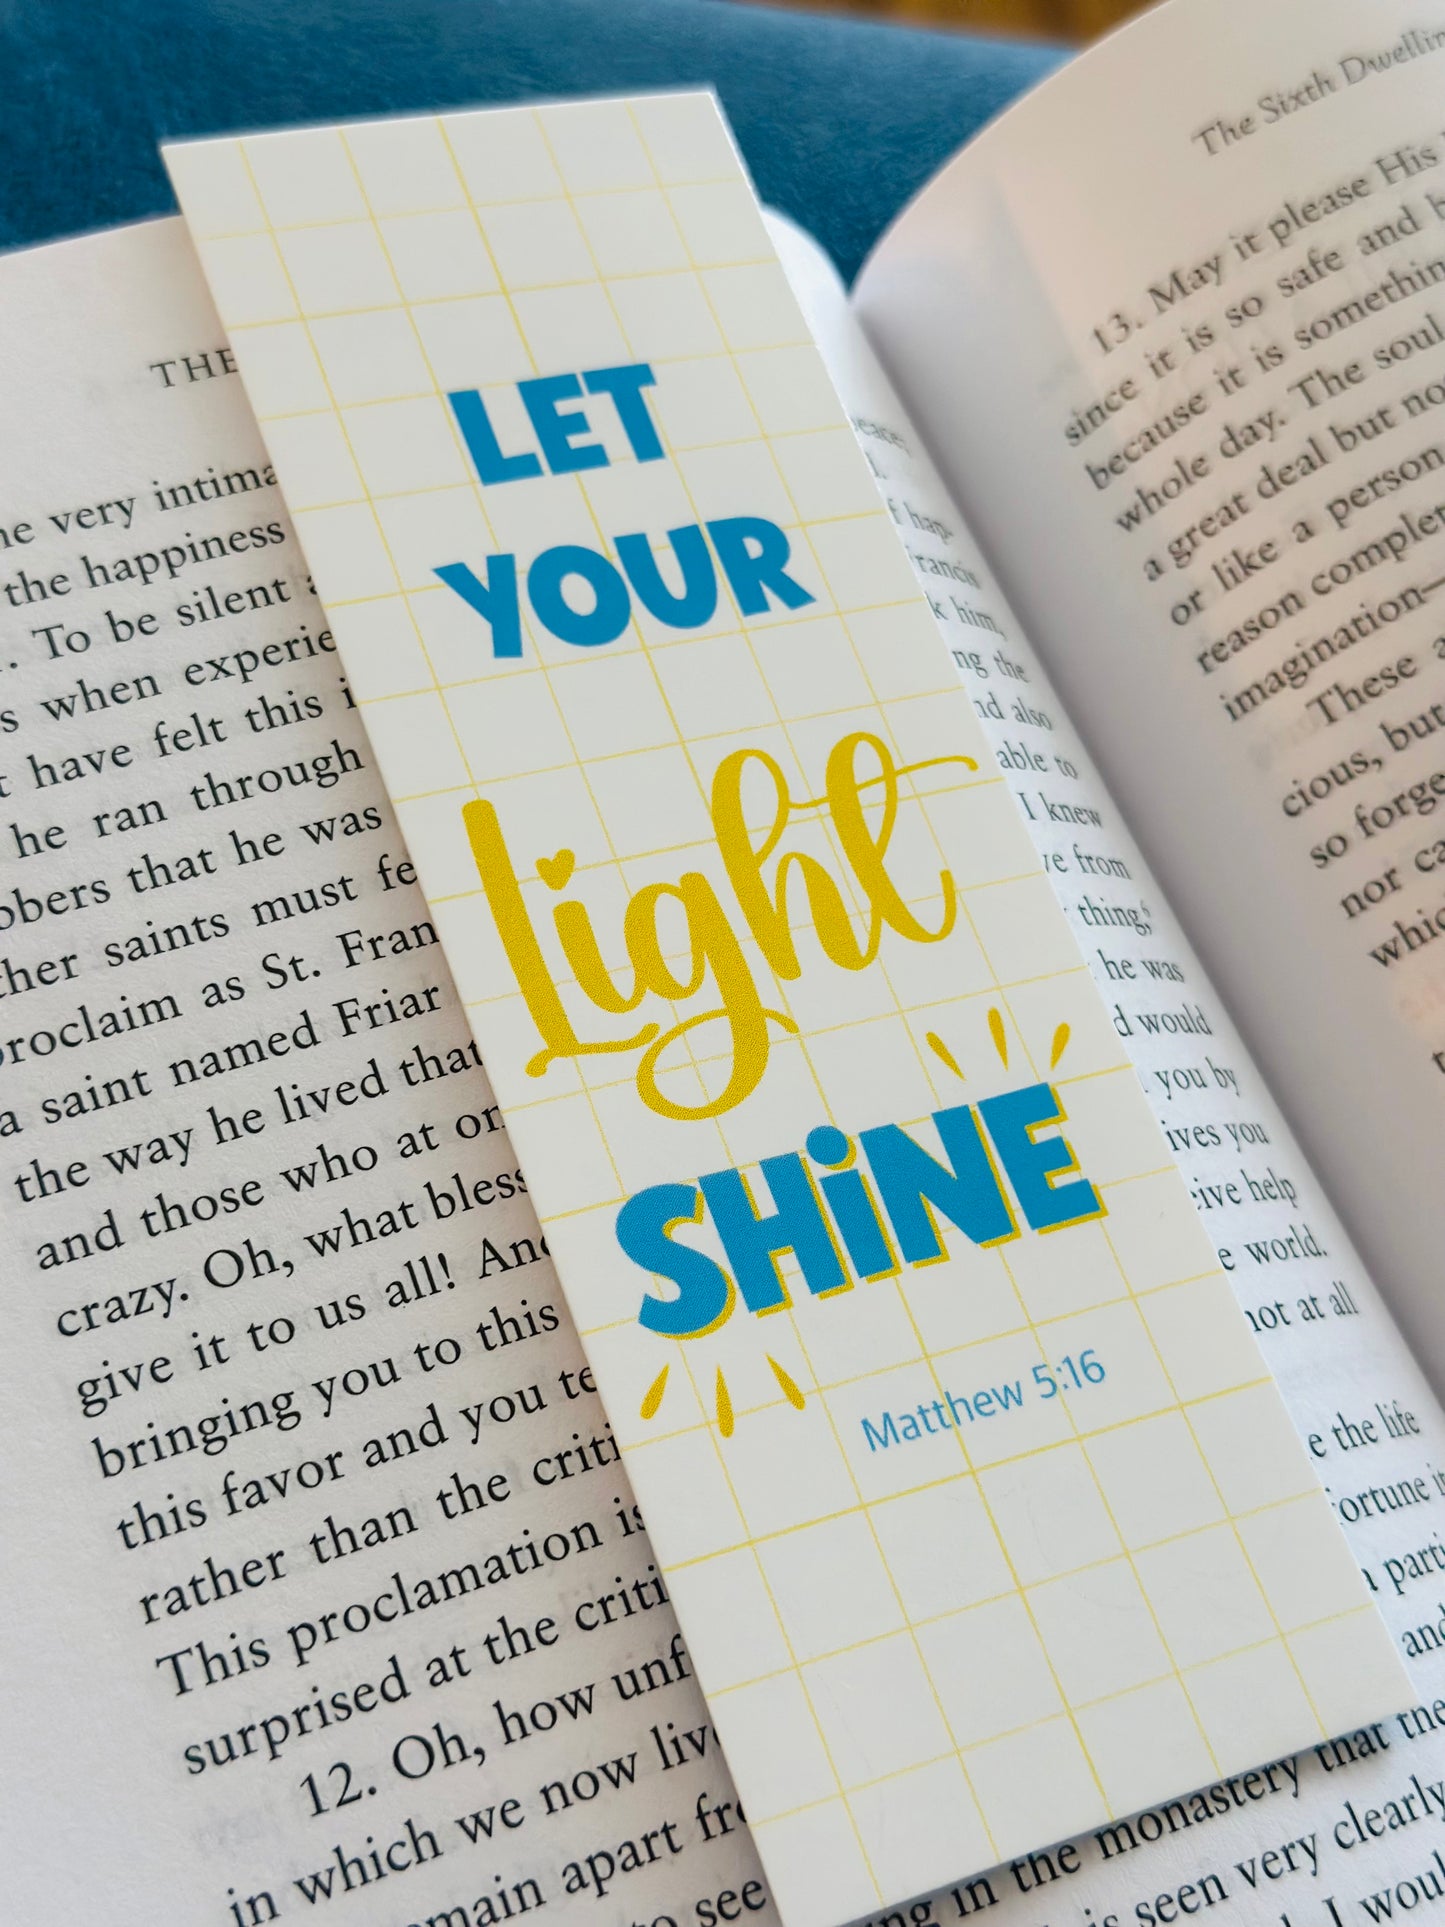 THE
very intima
the happiness
To be silent
when experie
have felt this
he ran through
that he was
saints must fe
proclaim as St. Fran
a saint named Friar
the way he lived that
and those who at on
crazy. Oh, what bless
give it to us all! And
bringing you to this
this favor and you te
rather than the criti
This proclamation is
surprised at the criti
12. Oh, how unf
in which we now live
main apart fro
to see
LET
YOUR
Light
SHiNE
Matthew 5:16
hap-
him,
ng the
nd also
able to
I knew
ve from
thing,
he was
d would
you by
ives you
eive help
e world.
not at all
e the life
fortune it
a parti
and
in the monastery that the
is seen very clearly
I woul
The Sixth Dwellin
13. May it please His
since it is so safe and
because it is somethin
whole day. The soul
a great deal but no
or like a person
reason complet
imagination—
These a
cious, but
so forge
nor ca
whic